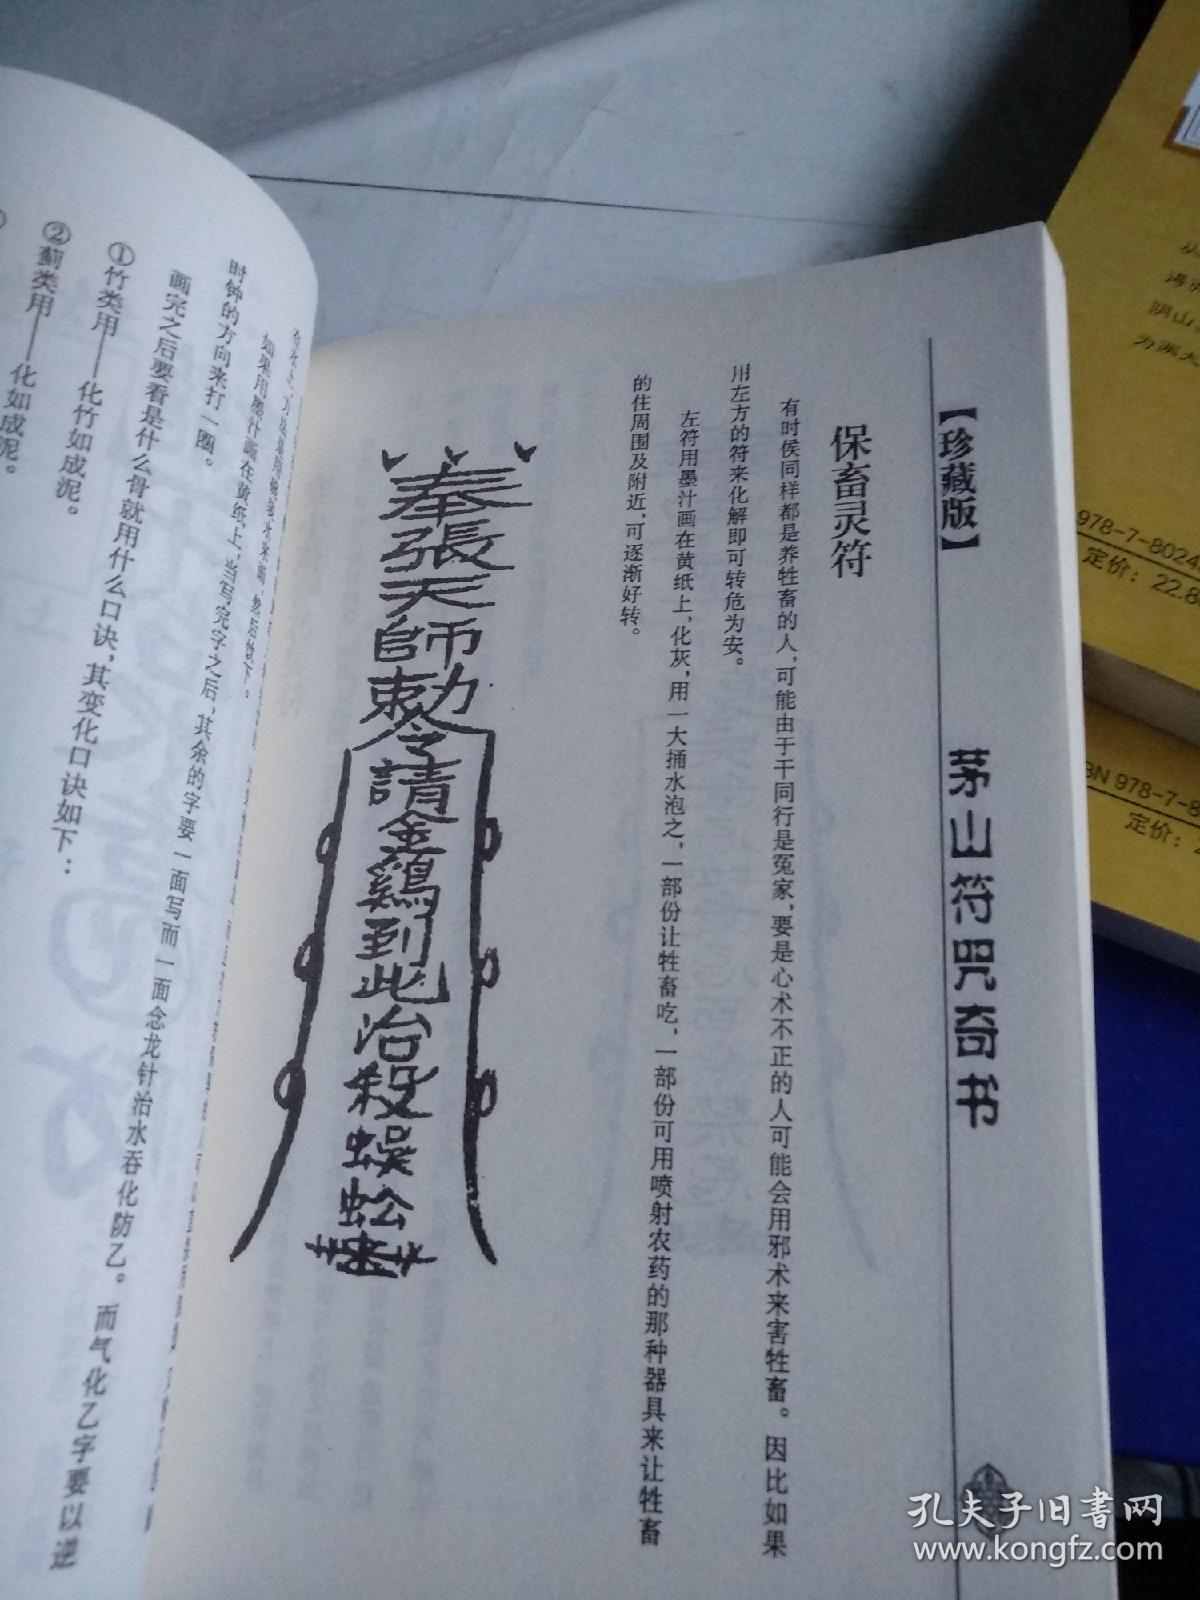 【珍藏版】
茅山符咒奇书
保畜灵符
有时侯同样都是养牲畜的人,可能由于干同行是冤家,要是心术不正的人可能会用邪术来害牲畜。因比如果
用左方的符来化解即可转危为安。
左符用墨汁画在黄纸上,化灰,用一大捅水泡之,一部份让牲畜吃,一部份可用喷射农药的那种器具来让牲畜
的住周围及附近,可逐渐好转。
奉張天師勅令請金鷄到此治殺蜈蚣
如果用墨汁画在黄纸上,当写完字之后,其余的字要一面写而一面念龙针治水吞化防乙。而气化乙字要以逆
时钟的方向来打一圈。
画完之后要看是什么骨就用什么口诀,其变化口诀如下:
①竹类用——化竹如成泥。
②蓟类用——化如成泥。
978-7-8024
定价:22.8
BN 978-7-8
定价:2
阴山
孔夫子旧书网
www.kongfz.com